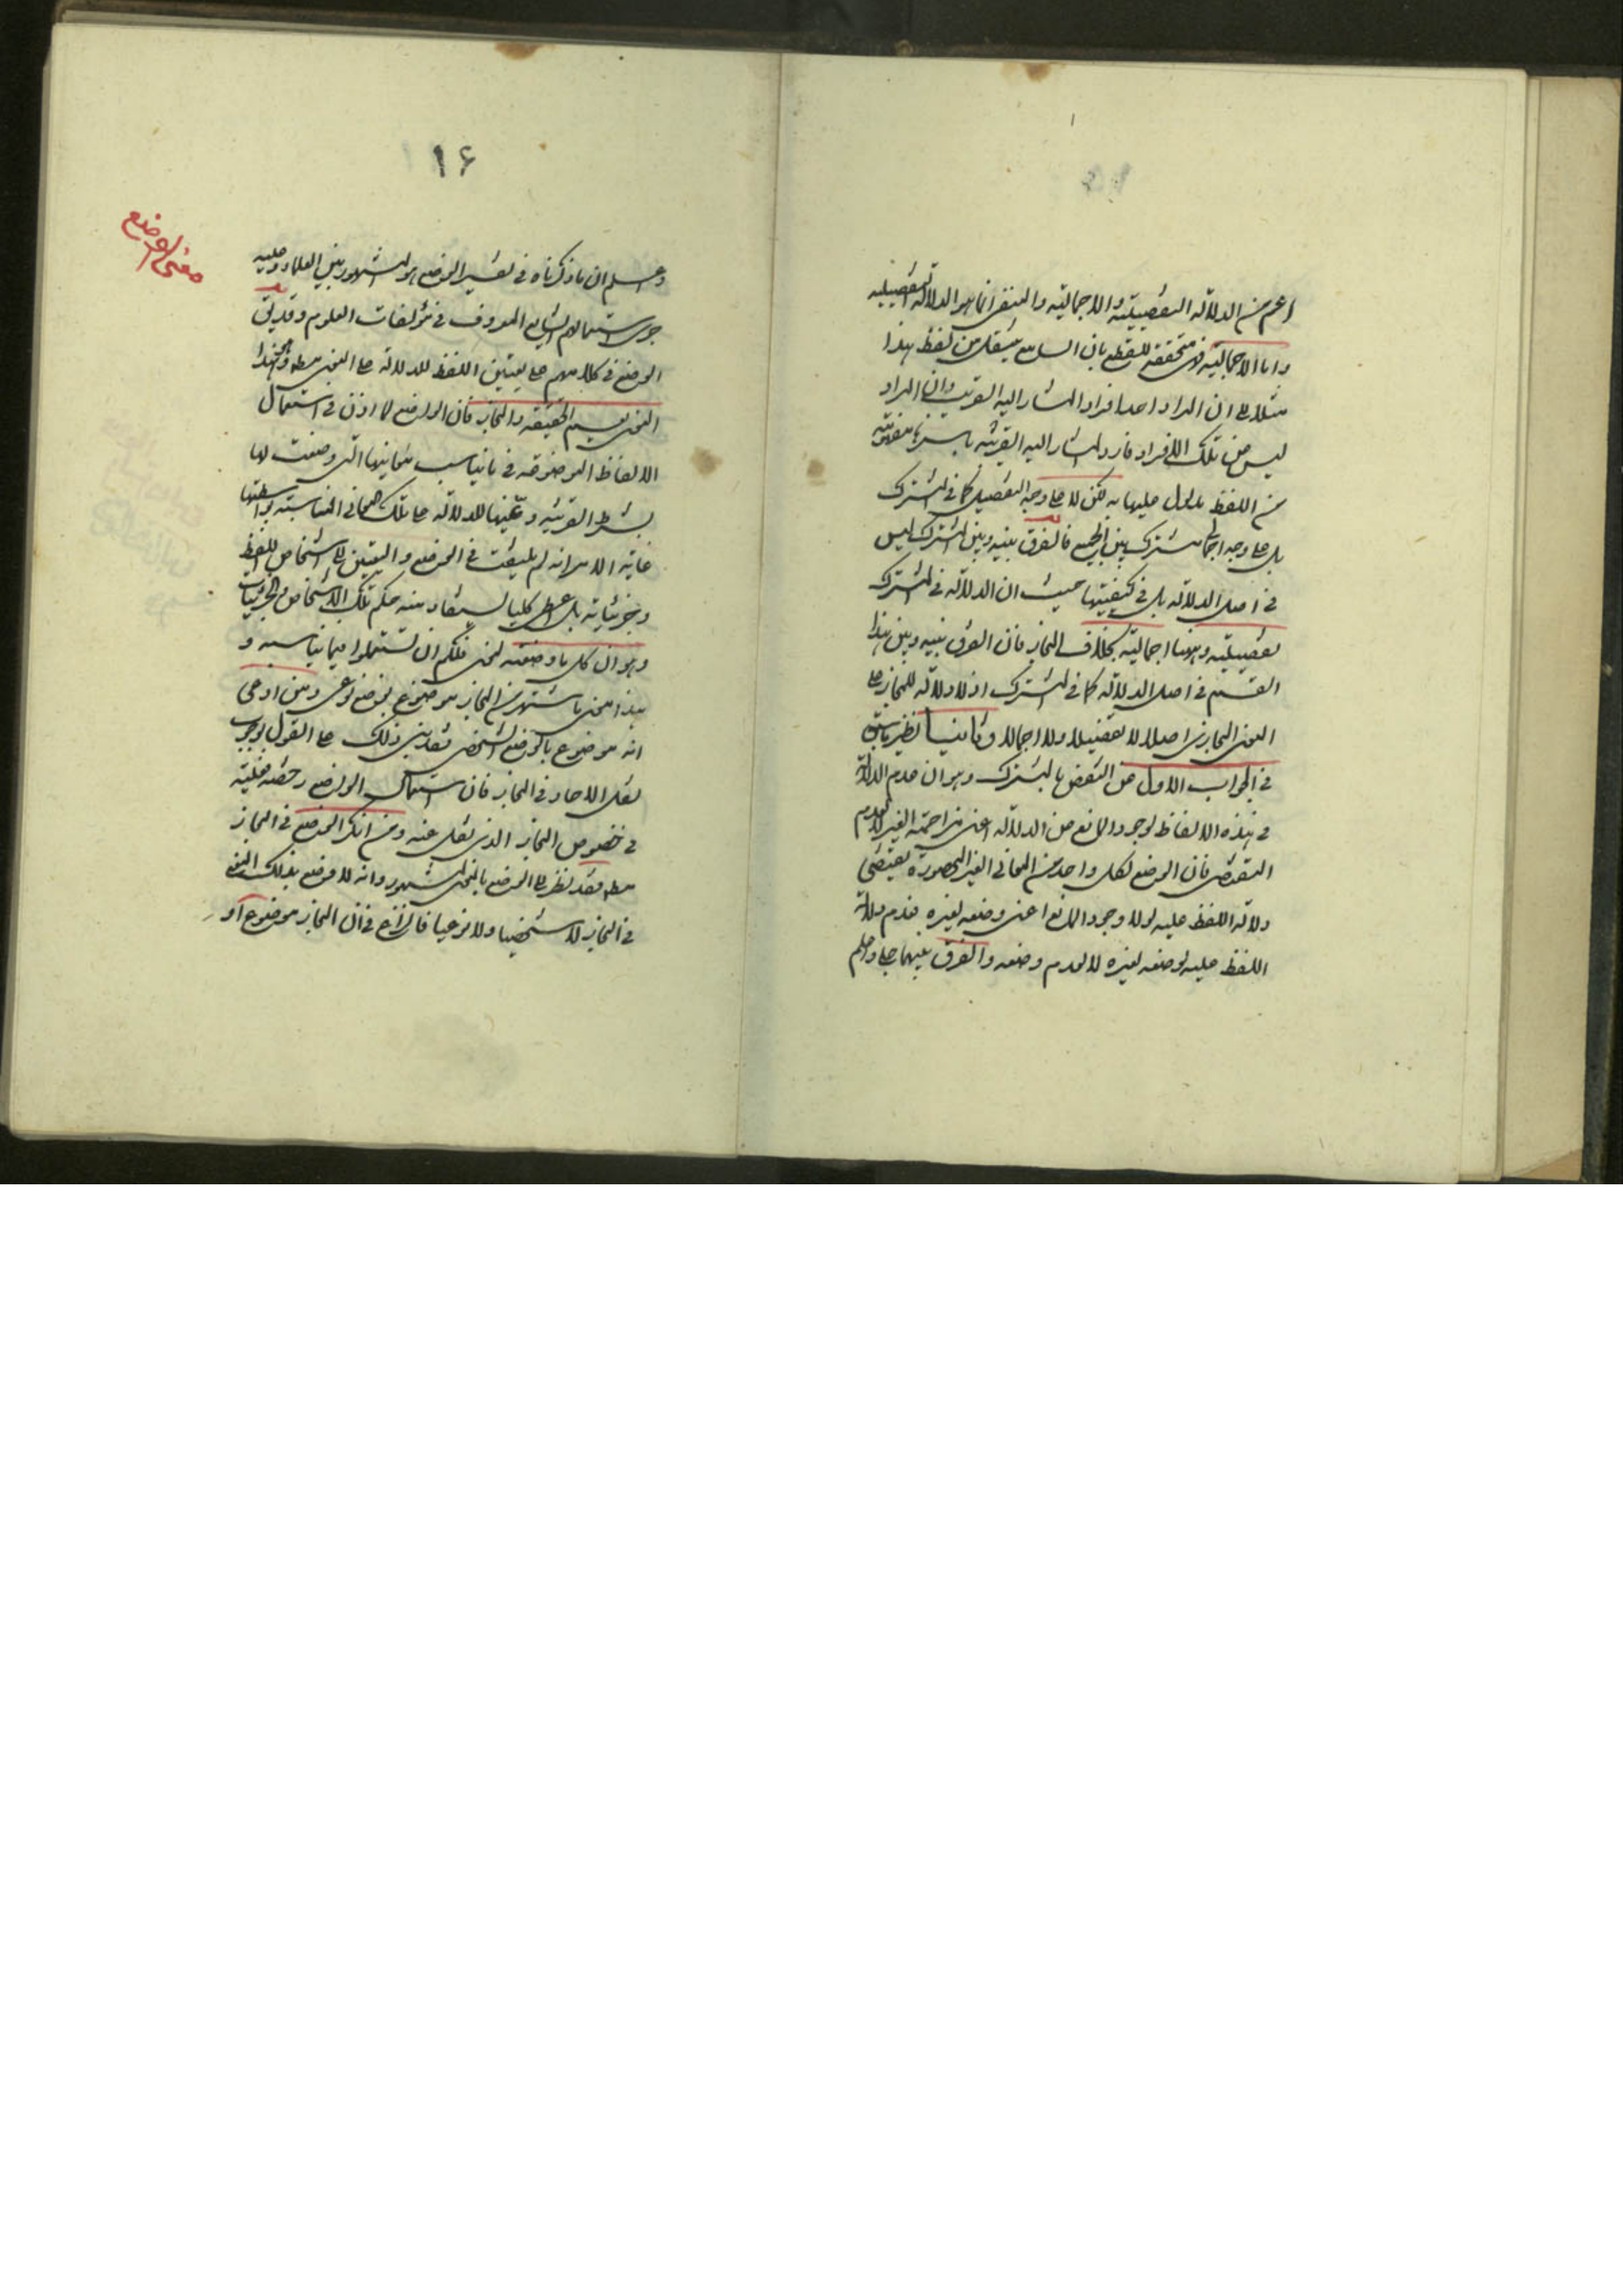 اعم من الدلالة التفصيلية والاجمالية والمنفى انما هو الدلالة التفصيلية
واما الاجمالية فهى متحققة للقطع بان السامع ينتقل من لفظ هذا
مثلا الى ان المراد احد افراد المشار اليه القريب وان المراد
ليس من تلك الافراد فارد المشار اليه القريب باسرها مفهومة
من اللفظ مدلول عليها به لكن لا على وجه التفصيل كما فى المشترك
بل على وجه اجمالى مشترك بين الجميع فالفرق بينه وبين المشترك ليس
فى اصل الدلالة بل فى كيفيتها حيث ان الدلالة فى المشترك
تفصيلية وههنا اجمالية بخلاف المجاز فان الفرق بينه وبين هذا
القسم فى اصل الدلالة كما فى المشترك اذ لا دلالة للمجاز على
المعنى المجازى اصلا لا تفصيلا ولا اجمالا وثانيا نظير ما سبق
فى الجواب الاول عن النقض بالمشترك وهو ان عدم الدلالة
فى هذه الالفاظ لوجود المانع من الدلالة اعنى مزاحمة الغير لا لعدم
المقتضى فان الوضع لكل واحد من المعانى الغير المحصورة يقتضى
دلالة اللفظ عليه لولا وجود المانع اعنى وضعه لغيره فعدم دلالة
اللفظ عليه لوضعه لغيره لا لعدم وضعه والفرق بينهما جلى واعلم
١۶
معنى الوضع
واعلم ان ما ذكرناه فى تفسير الوضع هو المشهور بين العلماء وعليه
جرى استعمالهم الشايع المعروف فى مؤلفات العلوم وقد يق
الوضع فى كلامهم على تعيين اللفظ للدلالة على المعنى مط وبهذا
المعنى يعم الحقيقة والمجاز فان الواضع لما اذن فى استعمال
الالفاظ الموضوعة فى ما يناسب معانيها التى وضعت لها
بشرط القرينة وعينها للدلالة على تلك المعانى المناسبة بواسطتها
غاية الامر انه لم يلتفت فى الوضع والتعيين الى اشخاص اللفظ
وجزئياته بل اعطى كليا يستفاد منه حكم تلك الاشخاص والجزئيات
وهو ان كل ما وضعته لمعنى فلكم ان تستعملوا فيما يناسبه و
هذا معنى ما اشتهر من ان المجاز موضوع بوضع نوعى ومن ادعى
انه موضوع بالوضع الشخصى فقد بنى ذلك على القول بوجوب
نقل الاحاد فى المجاز فان استعمال الواضع رخصة فعلية
فى خصوص المجاز الذى نقل عنه ومن انكر الوضع فى المجاز
مط فقد نظر الى الوضع بالمعنى المشهور وانه لا وضع بذلك المعنى
فى المجاز لا شخصيا ولا نوعيا فالنزاع فى ان المجاز موضوع او